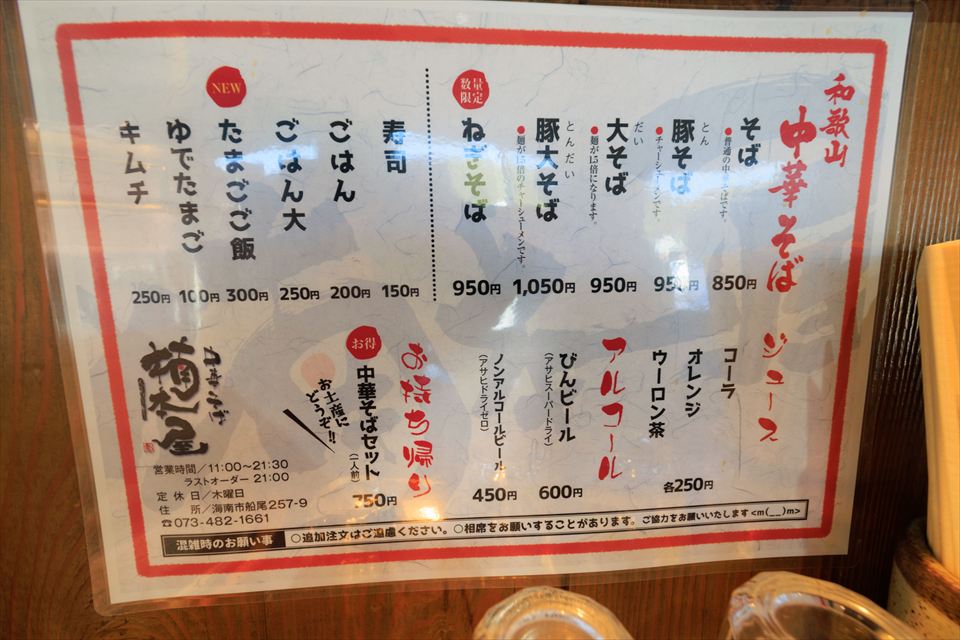 和歌山
中華そば
そば
●普通の中華そばです。
850円
とん
豚そば
●チャーシューメンです。
950円
だい
大そば
●麺が1.5倍になります。
950円
とんだい
豚大そば
●麺が1.5倍のチャーシューメンです。
1,050円
数量
限定
ねぎそば
950円
寿司
150円
ごはん
200円
ごはん大
250円
NEW
たまごご飯
300円
ゆでたまご
100円
キムチ
250円
ジュース
コーラ
オレンジ
ウーロン茶
各250円
アルコール
びんビール
(アサヒスーパードライ)
600円
ノンアルコールビール
(アサヒドライゼロ)
450円
お持ち帰り
お得
中華そばセット
(一人前)
750円
お土産に
どうぞ!!
中華そば
楠本屋
営業時間/11:00〜21:30
ラストオーダー 21:00
定休日/木曜日
住所/海南市船尾257-9
☎073-482-1661
混雑時のお願い事 ○追加注文はご遠慮ください。○相席をお願いすることがあります。ご協力をお願いいたします<m(__)m>